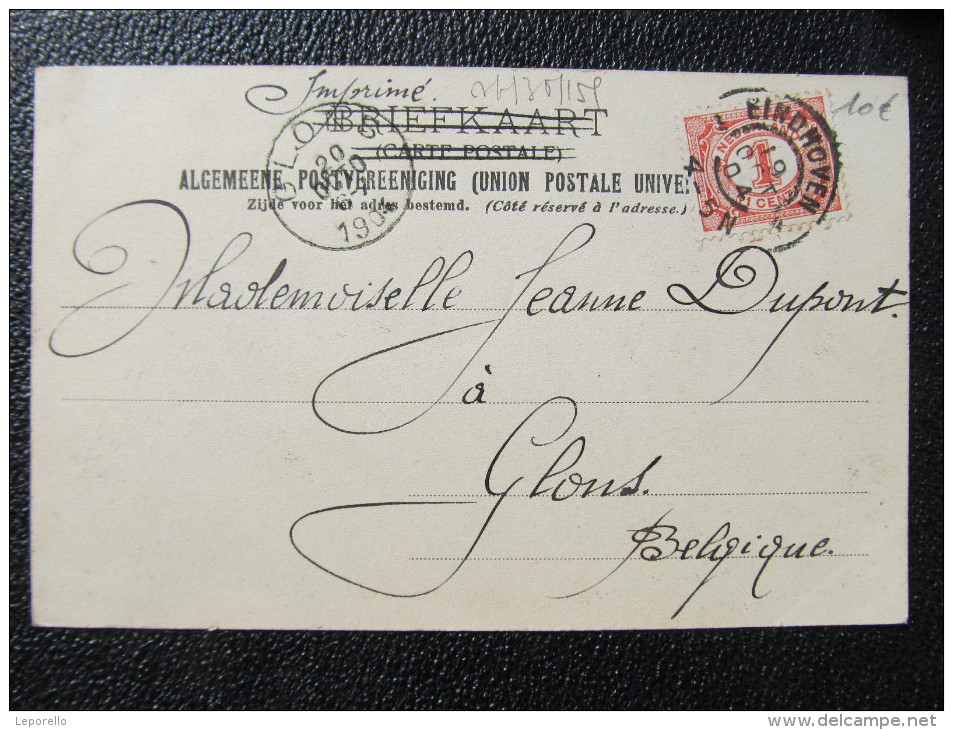 Imprimé
BRIEFKAART
(CARTE POSTALE)
ALGEMEENE POSTVEREENIGING (UNION POSTALE UNIVE
Zijde voor het adres bestemd. (Côté réservé à l'adresse.)
GLONS
20
1904
EINDHOVEN
4-5N
1
1 CENT
10€
Mademoiselle Jeanne Dupont.
à
Glons.
Belgique.
Leporello
www.delcampe.net